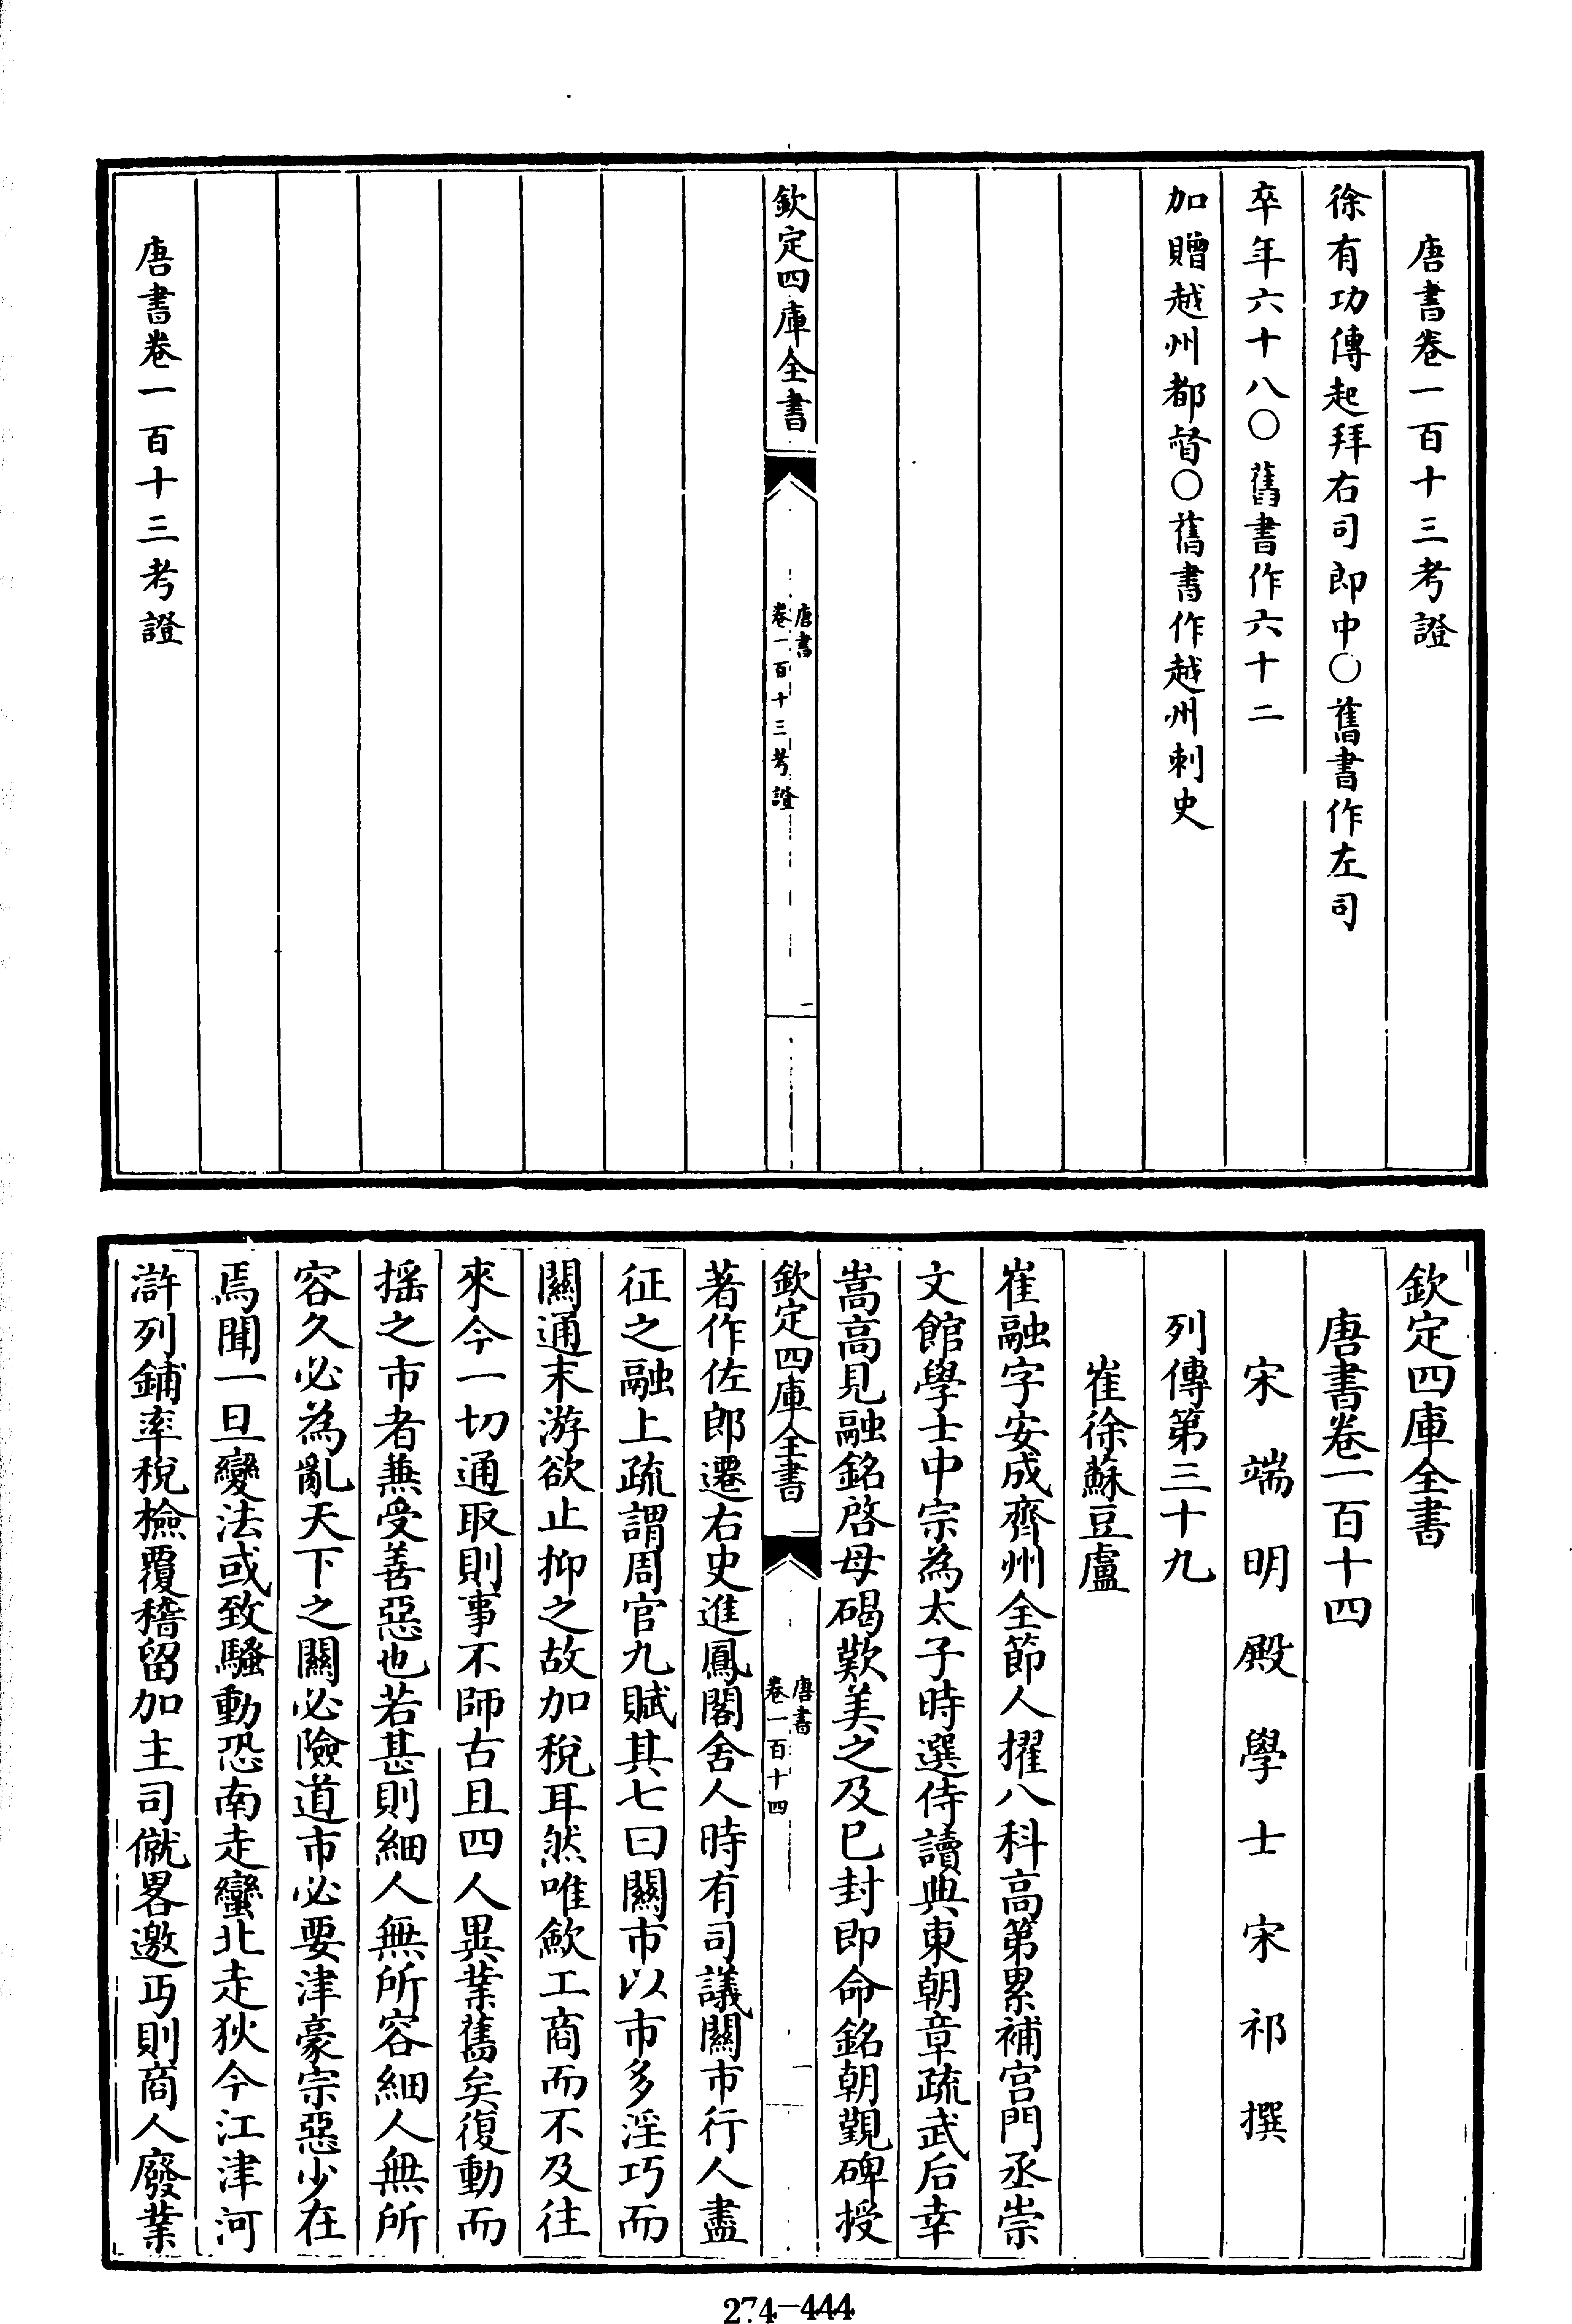 唐書卷一百十三考證
徐有功傳起拜右司郎中○舊書作左司
卒年六十八○舊書作六十二
加贈越州都督○舊書作越州刺史
欽定四庫全書
唐書
卷一百十三考證
一
唐書卷一百十三考證
欽定四庫全書
唐書卷一百十四
宋端明殿學士宋祁撰
列傳第三十九
崔徐蘇豆盧
崔融字安成齊州全節人擢八科高第累補宮門丞崇
文館學士中宗為太子時選侍讀典東朝章疏武后幸
嵩高見融銘啓母碣歎美之及已封即命銘朝覲碑授
欽定四庫全書
唐書
卷一百十四
一
著作佐郎遷右史進鳳閣舍人時有司議關市行人盡
征之融上疏謂周官九賦其七曰關市以市多淫巧而
關通末游欲止抑之故加稅耳然唯斂工商而不及往
來今一切通取則事不師古且四人異業舊矣復動而
搖之市者兼受善惡也若甚則細人無所容細人無所
容久必為亂天下之關必險道市必要津豪宗惡少在
焉聞一旦變法或致騷動恐南走蠻北走狄今江津河
滸列鋪率稅檢覆稽留加主司僦畧邀丐則商人廢業
274-444